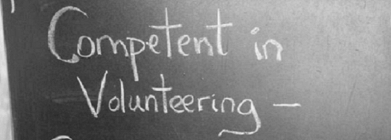 Competent in
Volunteering –